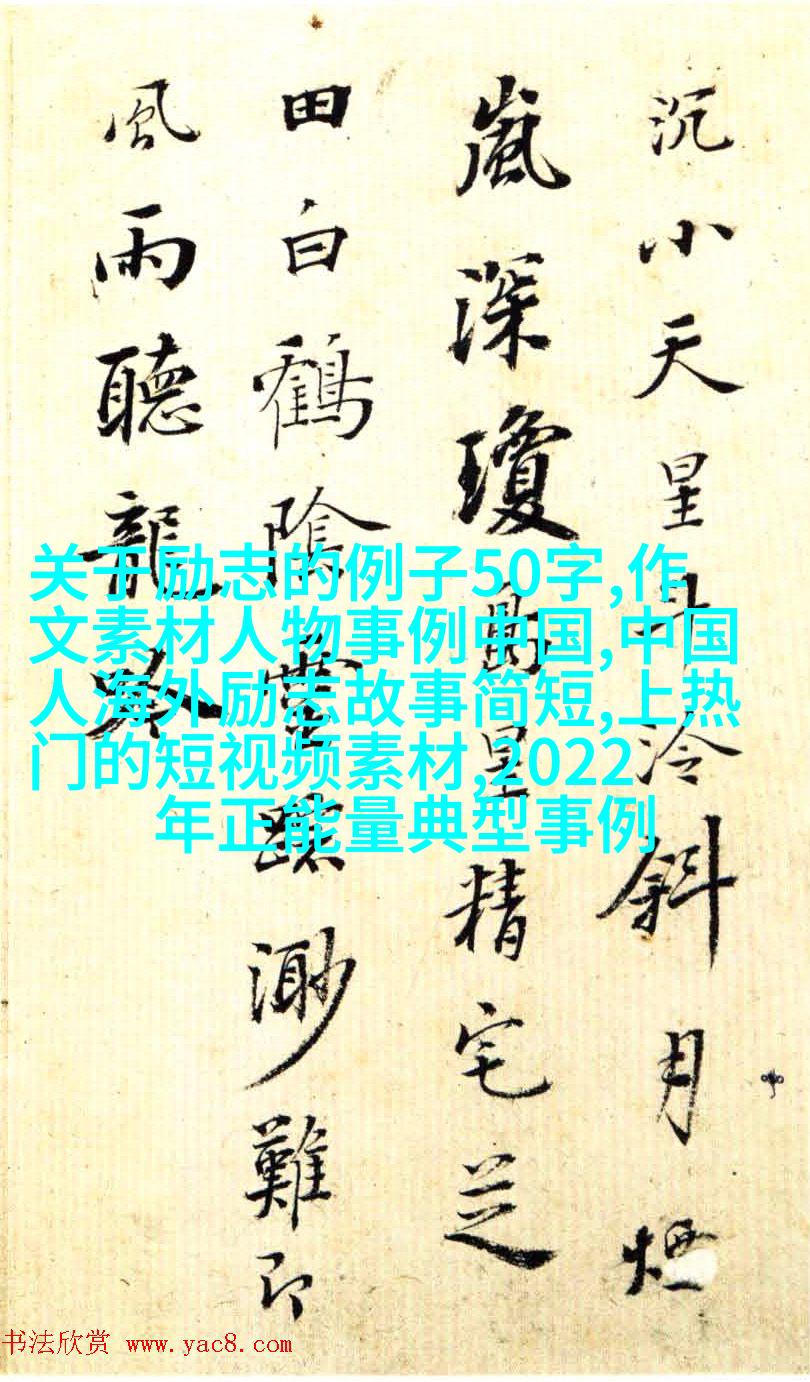 沉小天星斗冷斜月煙
嵐深瓊島星精宅芝
田白鶴隱渺難即
風雨聽龍吟
关于励志的例子50字,作
文素材人物事例中国,中国
人海外励志故事简短,上热
门的短视频素材,2022
年正能量典型事例
书法欣赏 www.yac8.com